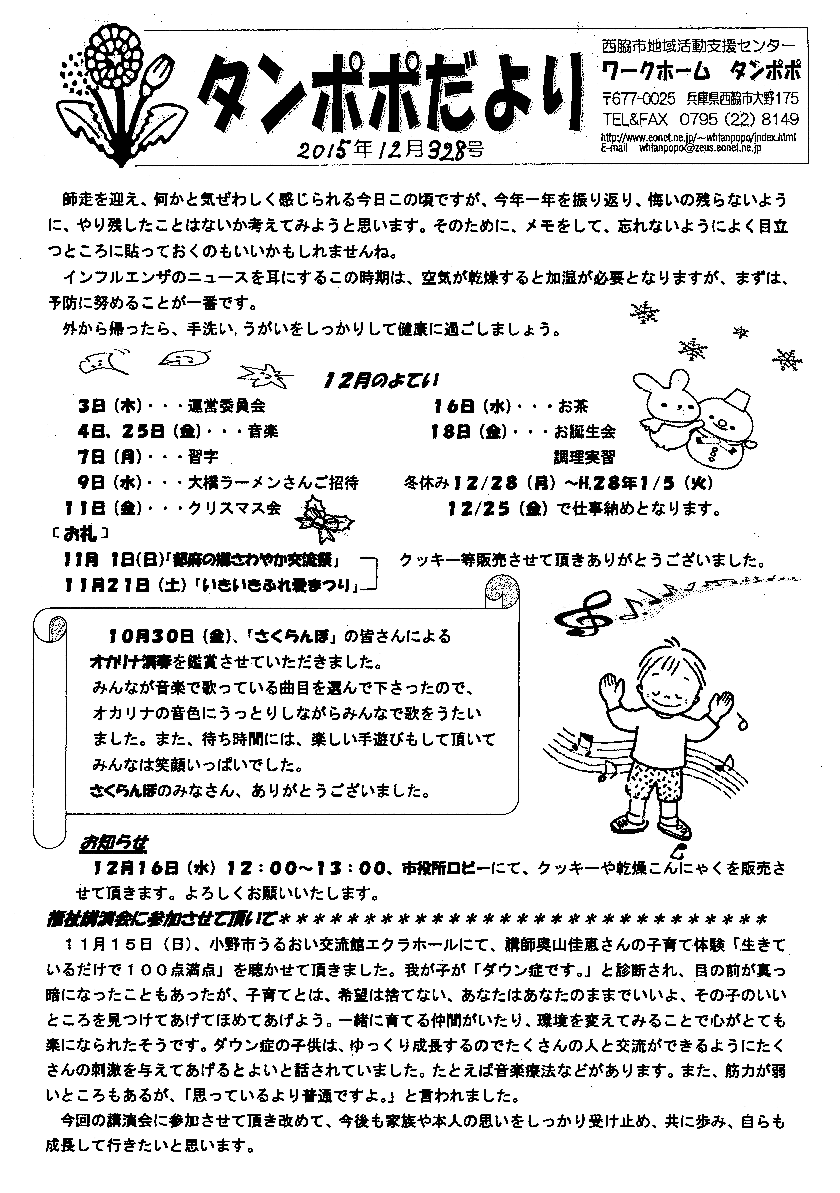 タンポポだより
2015年12月328号
西脇市地域活動支援センター
ワークホーム タンポポ
〒677-0025 兵庫県西脇市大野175
TEL&FAX 0795(22)8149
http://www.eonet.ne.jp/~whtanpopo/index.html
E-mail whtanpopo@zeus.eonet.ne.jp
師走を迎え、何かと気ぜわしく感じられる今日この頃ですが、今年一年を振り返り、悔いの残らないよう
に、やり残したことはないか考えてみようと思います。そのために、メモをして、忘れないようによく目立
つところに貼っておくのもいいかもしれませんね。
インフルエンザのニュースを耳にするこの時期は、空気が乾燥すると加湿が必要となりますが、まずは、
予防に努めることが一番です。
外から帰ったら、手洗い,うがいをしっかりして健康に過ごしましょう。
12月のよてい
3日(木)・・・運営委員会
4日、25日(金)・・・音楽
7日(月)・・・習字
9日(水)・・・大橋ラーメンさんご招待
11日(金)・・・クリスマス会
16日(水)・・・お茶
18日(金)・・・お誕生会
調理実習
冬休み12/28(月)~H.28年1/5(火)
12/25(金)で仕事納めとなります。
[お礼]
11月 1日(日)「都麻の郷さわやか交流祭」
11月21日(土)「いきいきふれ愛まつり」
クッキー等販売させて頂きありがとうございました。
10月30日(金)、「さくらんぼ」の皆さんによる
オカリナ演奏を鑑賞させていただきました。
みんなが音楽で歌っている曲目を選んで下さったので、
オカリナの音色にうっとりしながらみんなで歌をうたい
ました。また、待ち時間には、楽しい手遊びもして頂いて
みんなは笑顔いっぱいでした。
さくらんぼのみなさん、ありがとうございました。
お知らせ
12月16日(水)12:00~13:00、市役所ロビーにて、クッキーや乾燥こんにゃくを販売さ
せて頂きます。よろしくお願いいたします。
福祉講演会に参加させて頂いて＊＊＊＊＊＊＊＊＊＊＊＊＊＊＊＊＊＊＊＊＊＊＊＊＊＊＊＊＊＊
11月15日(日)、小野市うるおい交流館エクラホールにて、講師奥山佳恵さんの子育て体験「生きて
いるだけで100点満点」を聴かせて頂きました。我が子が「ダウン症です。」と診断され、目の前が真っ
暗になったこともあったが、子育てとは、希望は捨てない、あなたはあなたのままでいいよ、その子のいい
ところを見つけてあげてほめてあげよう。一緒に育てる仲間がいたり、環境を変えてみることで心がとても
楽になられたそうです。ダウン症の子供は、ゆっくり成長するのでたくさんの人と交流ができるようにたく
さんの刺激を与えてあげるとよいと話されていました。たとえば音楽療法などがあります。また、筋力が弱
いところもあるが、「思っているより普通ですよ。」と言われました。
今回の講演会に参加させて頂き改めて、今後も家族や本人の思いをしっかり受け止め、共に歩み、自らも
成長して行きたいと思います。